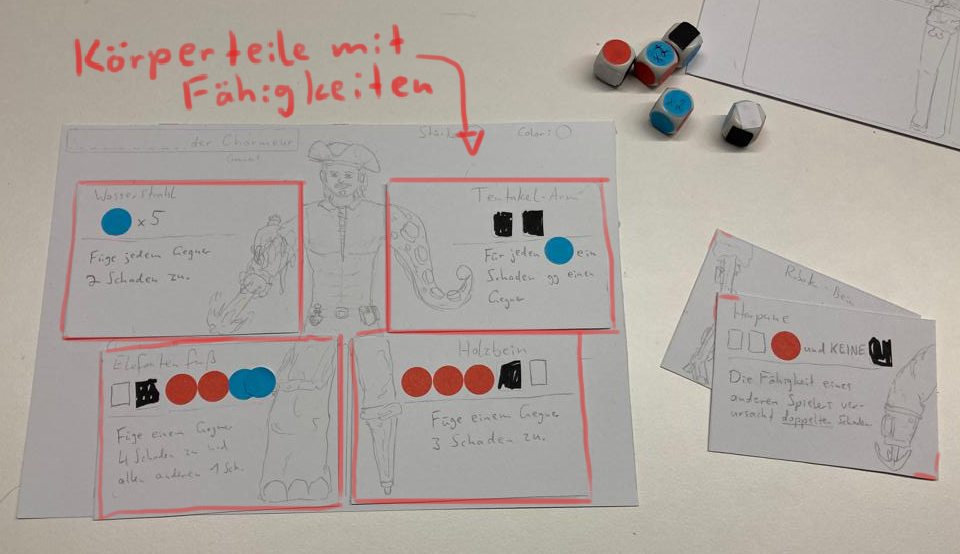 Körperteile mit
Fähigkeiten
der Charmeur
Stärke
Color:
Wasserstrahl
x 5
Füge jedem Gegner
2 Schaden zu.
Tentakel-Arm
Für jeden ein
Schaden gg einen
Gegner
Elefantenfuß
Füge einem Gegner
4 Schaden zu und
allen anderen 1 Sch.
Holzbein
Füge einem Gegner
3 Schaden zu.
x2
Bein
Harpune
und KEINE
Die Fähigkeit eines
anderen Spielers ver-
ursacht doppelten Schaden